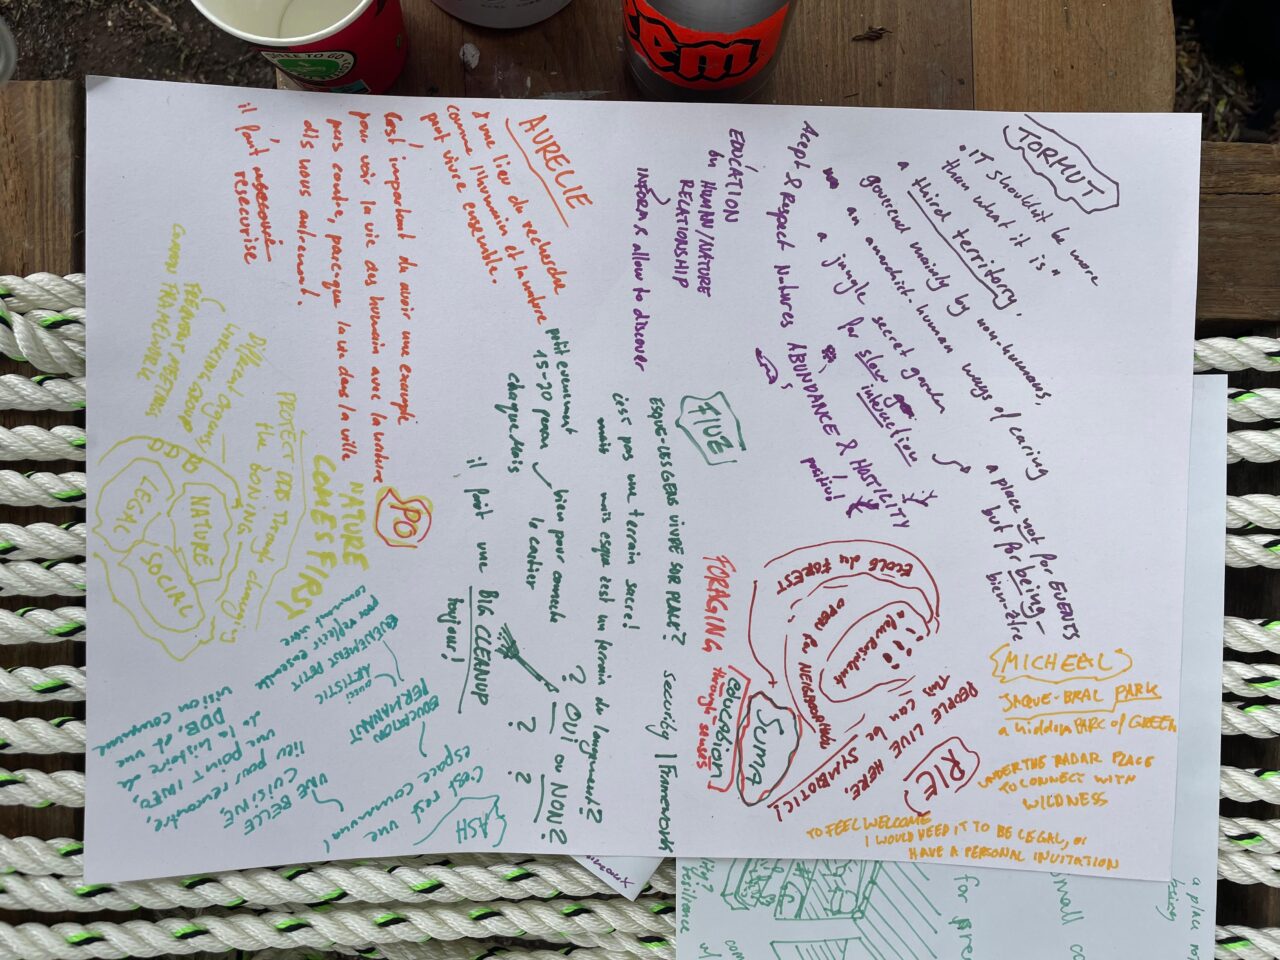 TORMUT
"IT shouldn't be more
than what it is"
a third territory,
governed mainly by non-humans,
an anarchist-human ways of caring
a jungle secret garden
for slow interaction
a place not for EVENTS
but for being-
bien-être
Accept & Respect Natures ABUNDANCE & HOSTILITY
positive!
EDUCATION
on HUMAN/NATURE
RELATIONSHIP
INFORM & allow to discover
MICHEAL
JAQUE-BRAL PARK
a hidden PARC of GREEN
UNDER THE RADAR PLACE
TO CONNECT WITH
WILDNESS
TO FEEL WELCOME
I WOULD NEED IT TO BE LEGAL, OR
HAVE A PERSONAL INVITATION
RIC
PEOPLE LIVE HERE,
This can be SYMBIOTIC!
ECOLE du FOREST
OPEN for NEIGBORHOOD
a few residents
SUMA
FORAGING
education
through senses
FIVE
ESQUE-LES GENS VIVRE SUR PLACE? Security / Framework
c'ést pas une terrain sacré!
mais espe est un terrain de longement?
petit evenement
15-20 person
chaque mois
bien pour connect
le cartier
? OUI ou NON?
? ?
il fait une BIG CLEANUP
toujour!
AURELIE
une lieu du recherche
comme l'humain et la nature
peut vivre ensemble.
C'est important du avoir une exemple
pour voir la vie des humain avec la nature
pars contre, parceque la vie dans la ville
dis nous autrement.
il faut
resecurise
PO
NATURE
COMES FIRST
PROTECT DDB Through changing
the ZONING
Different Organs/
WORKING GROUP
FERMENT MEETINGS
COMMON FRAMEWORK
DDB
LEGAL
NATURE
SOCIAL
ASH
C'est rest une
espace commun!
EDUCATION
PERMANANT
aussi
ARTISTIC
EVENEMENT PETIT
pour reflectir ensemble
comment vivre
UNE BELLE
CUISINE
lieu pour rencontre,
une point INFO,
de la histoire de
DDB et une
vision commune
a place not
small
for